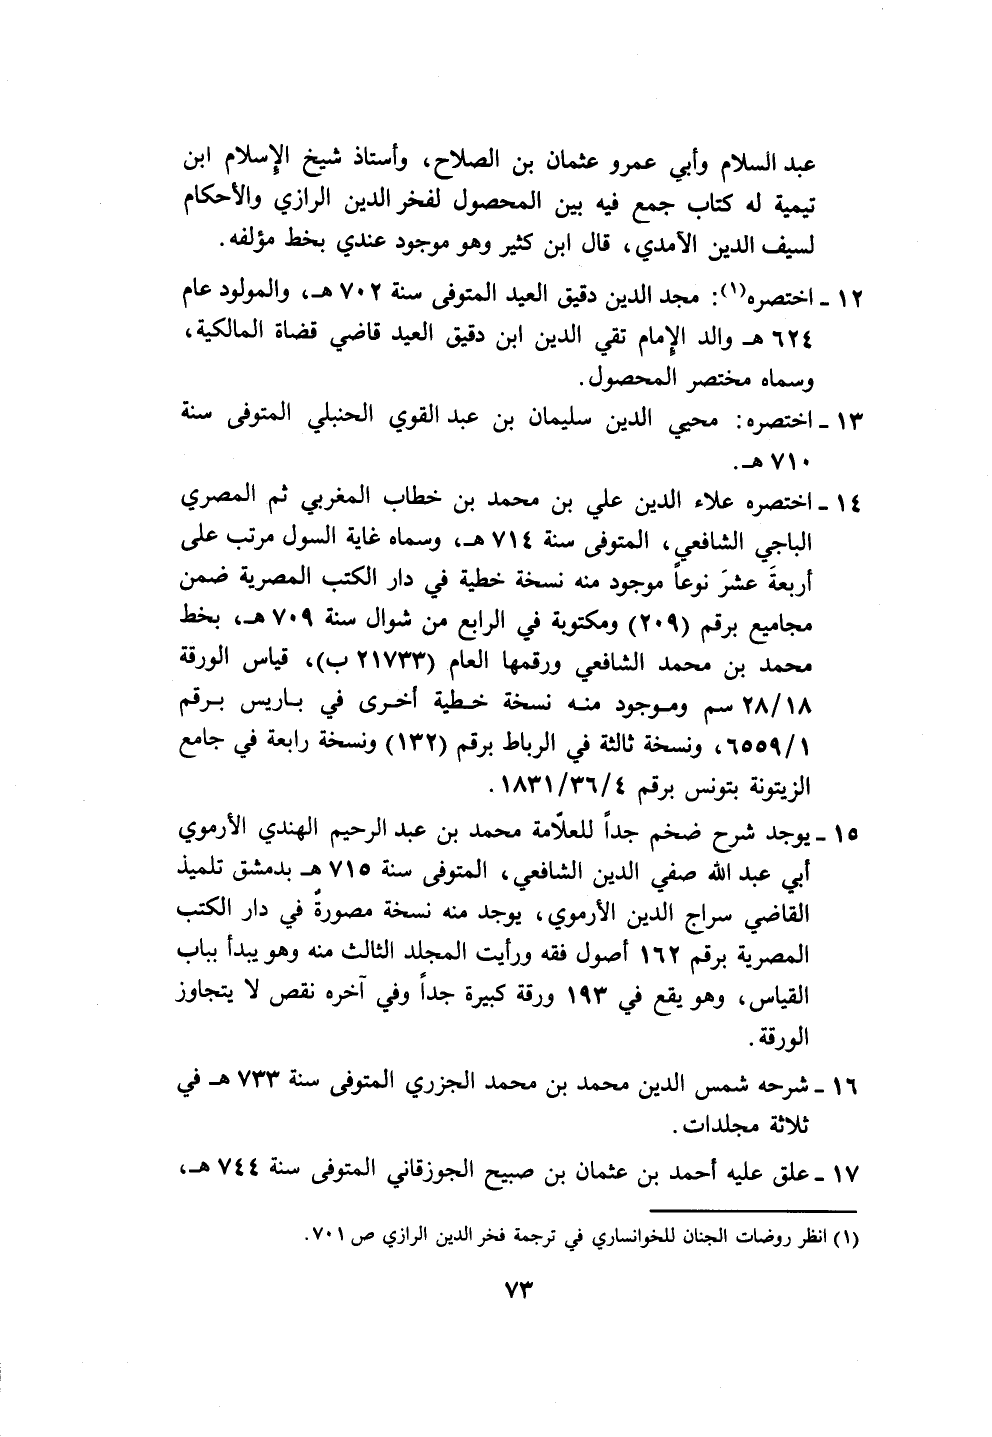 عبد السلام وأبي عمرو عثمان بن الصلاح، وأستاذ شيخ الإسلام ابن
تيمية له كتاب جمع فيه بين المحصول لفخر الدين الرازي والأحكام
لسيف الدين الآمدي، قال ابن كثير وهو موجود عندي بخط مؤلفه.
١٢ ـ اختصره(١): مجد الدين دقيق العيد المتوفى سنة ٧٠٢ هـ، والمولود عام
٦٢٤ هـ والد الإمام تقي الدين ابن دقيق العيد قاضي قضاة المالكية،
وسماه مختصر المحصول.
١٣ ـ اختصره: محيي الدين سليمان بن عبد القوي الحنبلي المتوفى سنة
٧١٠ هـ.
١٤ ـ اختصره علاء الدين علي بن محمد بن خطاب المغربي ثم المصري
الباجي الشافعي، المتوفى سنة ٧١٤ هـ، وسماه غاية السول مرتب على
أربعةَ عشرَ نوعاً موجود منه نسخة خطية في دار الكتب المصرية ضمن
مجاميع برقم (٢٠٩) ومكتوبة في الرابع من شوال سنة ٧٠٩ هـ، بخط
محمد بن محمد الشافعي ورقمها العام (٢١٧٣٣ ب)، قياس الورقة
٢٨/١٨ سم وموجود منه نسخة خطية أخرى في باريس برقم
٦٥٥٩/١، ونسخة ثالثة في الرباط برقم (١٣٢) ونسخة رابعة في جامع
الزيتونة بتونس برقم ١٨٣١/٣٦/٤.
١٥ ـ يوجد شرح ضخم جداً للعلاّمة محمد بن عبد الرحيم الهندي الأرموي
أبي عبد الله صفي الدين الشافعي، المتوفى سنة ٧١٥ هـ بدمشق تلميذ
القاضي سراج الدين الأرموي، يوجد منه نسخة مصورةً في دار الكتب
المصرية برقم ١٦٢ أصول فقه ورأيت المجلد الثالث منه وهو يبدأ بباب
القياس، وهو يقع في ١٩٣ ورقة كبيرة جداً وفي آخره نقص لا يتجاوز
الورقة.
١٦ ـ شرحه شمس الدين محمد بن محمد الجزري المتوفى سنة ٧٣٣ هـ في
ثلاثة مجلدات.
١٧ ـ علق عليه أحمد بن عثمان بن صبيح الجوزقاني المتوفى سنة ٧٤٤ هـ،
(١) انظر روضات الجنان للخوانساري في ترجمة فخر الدين الرازي ص ٧٠١.
٧٣